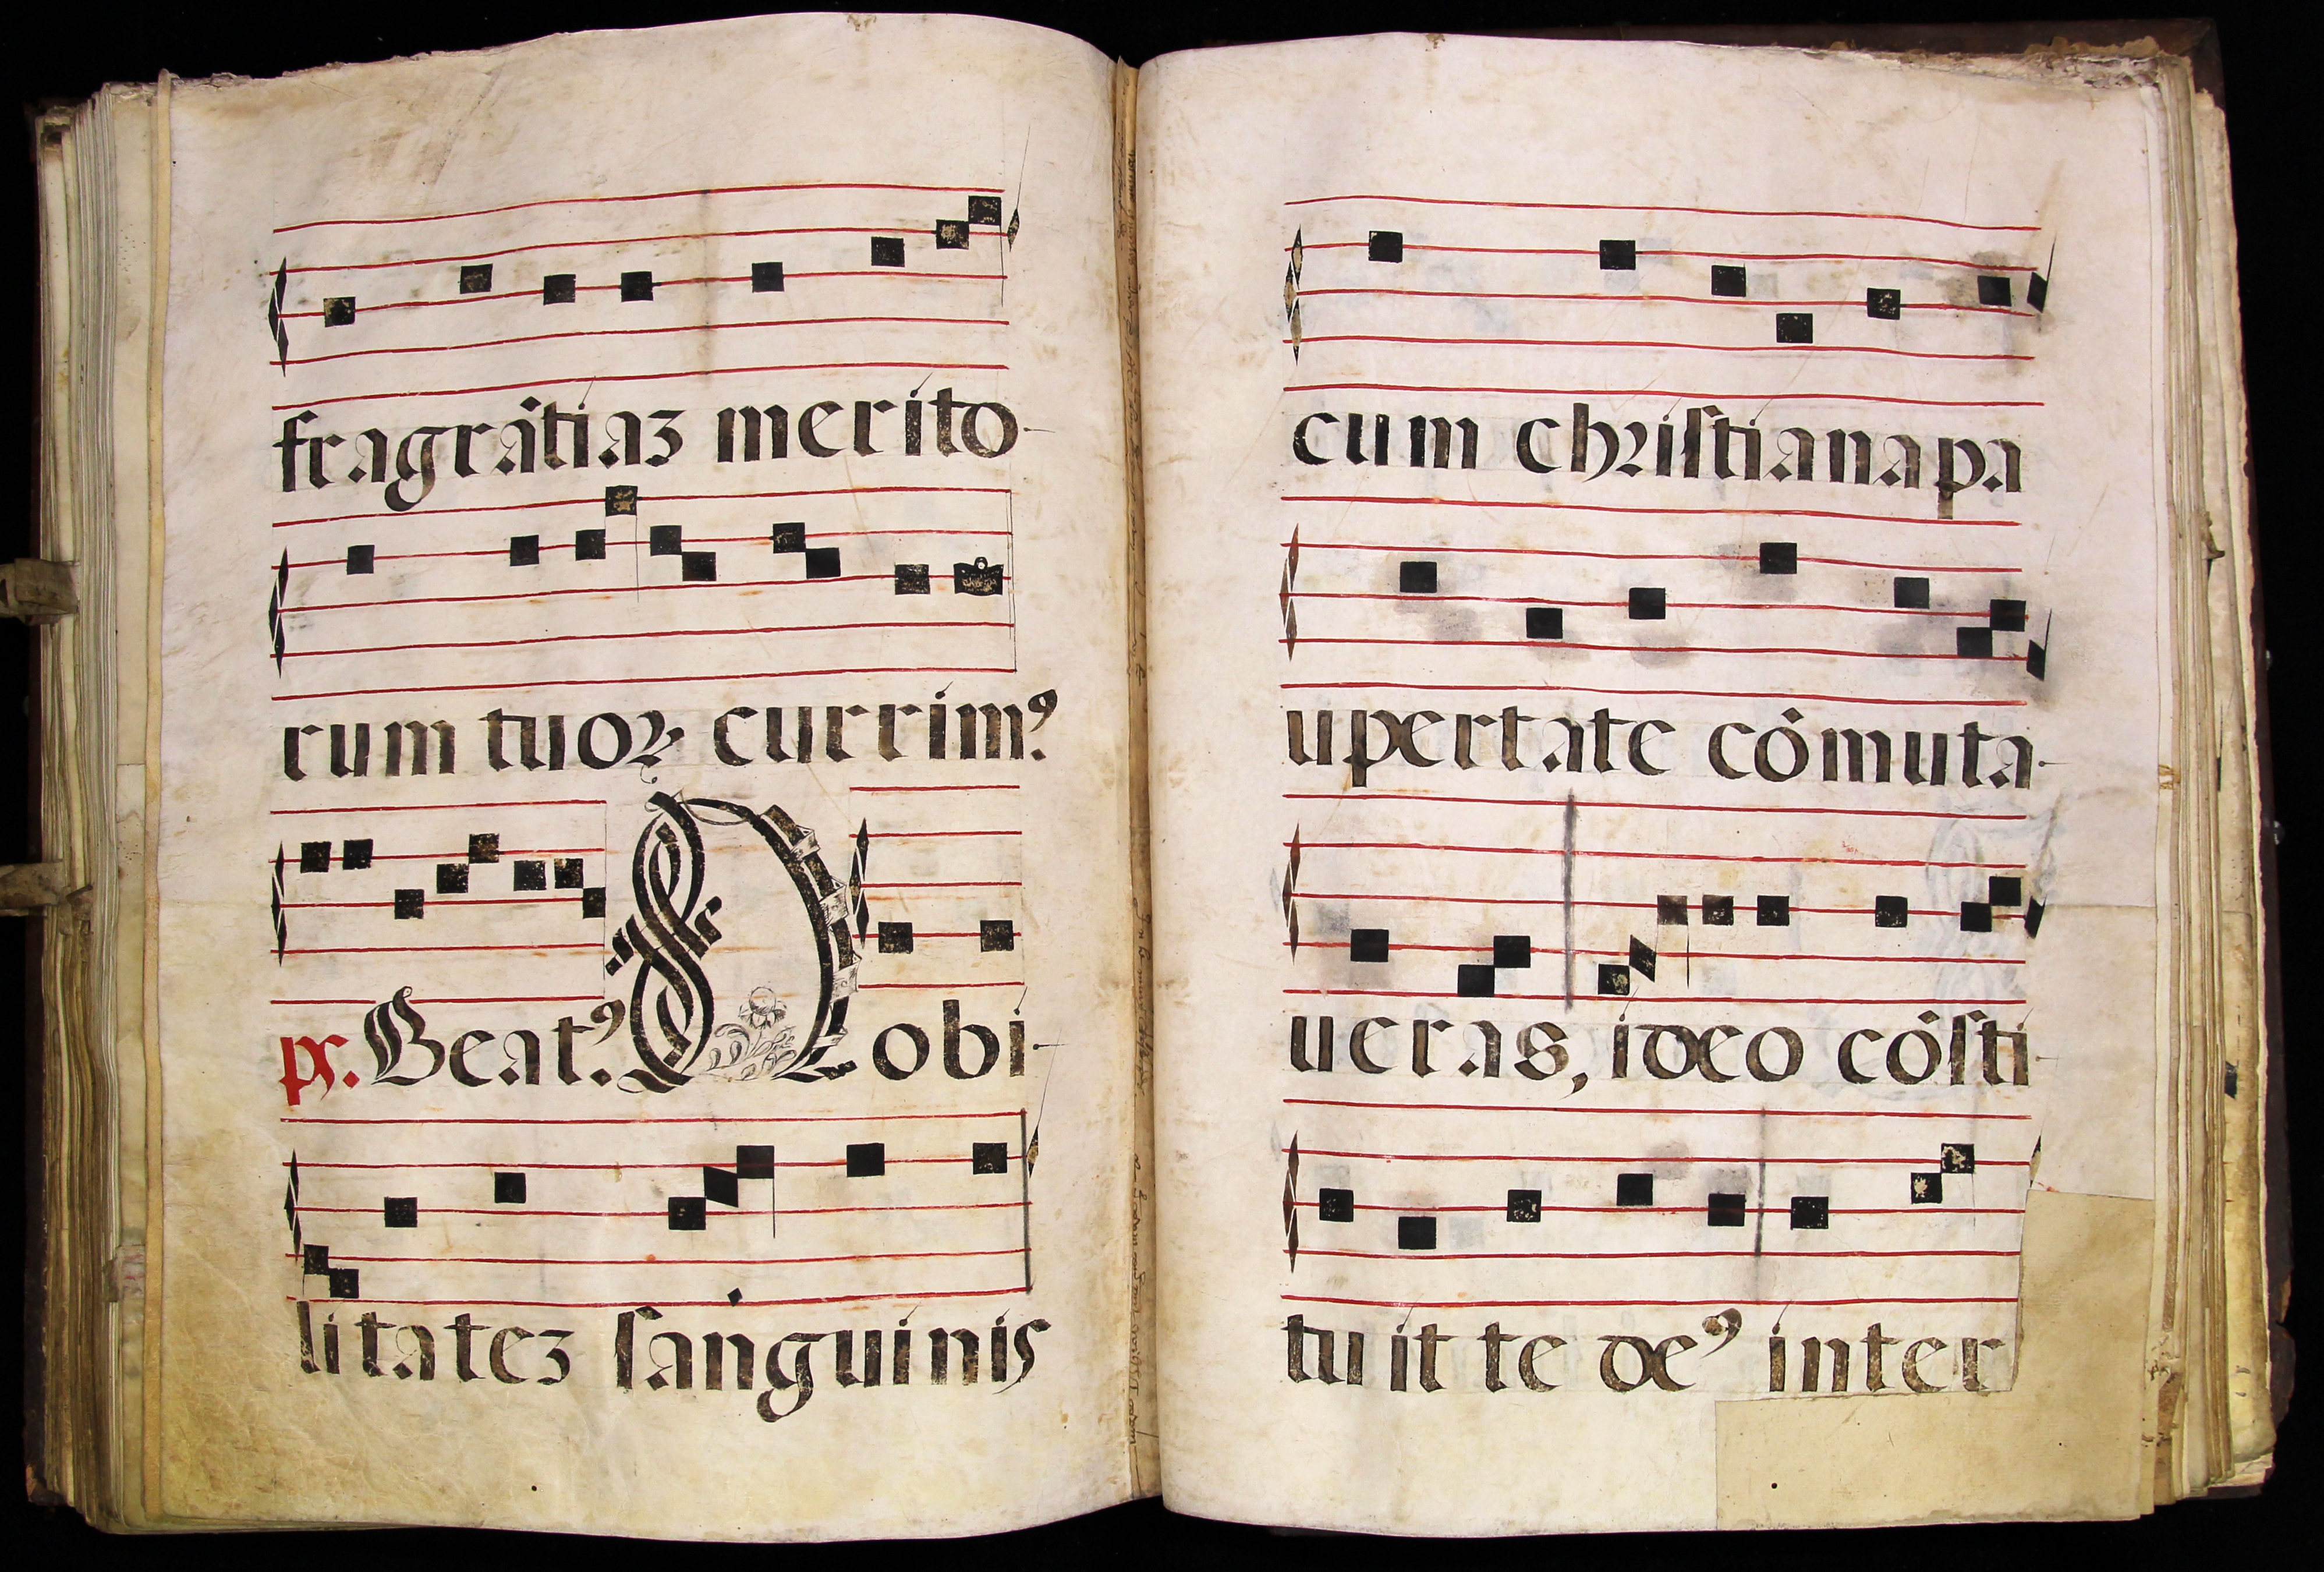 fragrâtiaʒ merito
rum tuoꝝ currimꝰ
ps. Beatꝰ. Nobi
litateʒ ſanguinis
cum chriſtiana pa
upertate cômuta
ueras, ideo côſti
tuit te deꝰ inter